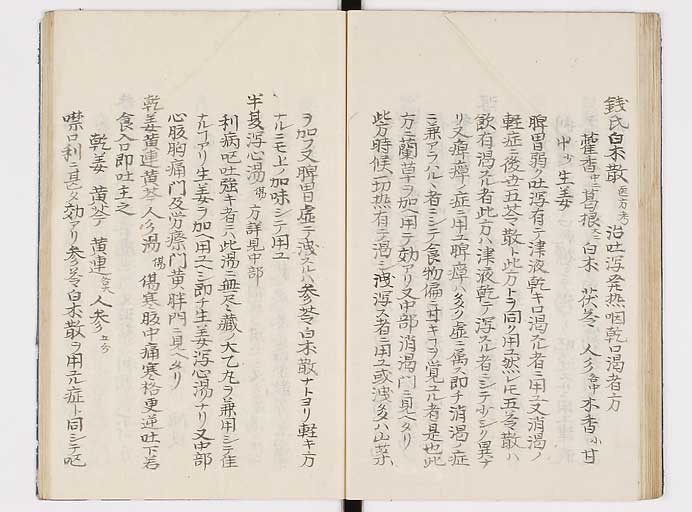 錢氏白朮散 治吐瀉発熱咽乾口渇者方
藿香 葛根 白朮 茯苓 人参 木香 甘
中 生姜
脾胃弱ク吐泻有テ津液乾キ口渇スル者ニ用ユ又消渇ノ
軽症ニ後
飲有渇スル者此方ハ津液乾テ泻スル者ニシテ少シク異ナ
リ又脾癉ノ症ニ用ユ脾癉ハ多ク虚ニ属ス即チ消渇ノ症
ニ兼アラハルヽ者ニシテ食物偏ニ甘キコヲ覚ユル者是也此
方ニ蘭草ヲ加ヘ用テ効アリ又中部消渇門ニ見ヘタリ
此方時候一切热有テ渇シ泄泻スル者ニ用ユ或泄多ハ山薬
ヲ加フ又脾胃虚シテ泄スルハ参苓白朮散ナトヨリ軽キ方
ナルニモ上ノ加味シテ用ユ
半夏泻心湯 傷 方詳見中部
利病呕吐強キ者ニハ此湯ニ無尽藏ノ大乙丸ヲ兼用シテ佳
ナルコアリ生姜ヲ加ヘ用ユヘシ即チ生姜泻心湯ナリ又中部
心腹胸痛門及労瘵門黄胖門ニ見ヘタリ
乾姜黄連黄芩人参湯 傷 傷寒腹中痛寒格更逆吐下若
食入口即吐主之
乾姜 黄芩 黄連 人参
噤口利ニ甚タ効アリ参苓白朮散ヲ用ル症ト同シテ呕